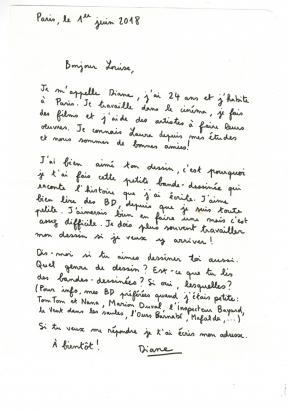 Paris, le 1er juin 2018
Bonjour Louise,
Je m'appelle Diane, j'ai 24 ans et j'habite
à Paris. Je travaille dans le cinéma, je fais
des films et j'aide des artistes à faire leurs
œuvres. Je connais Laura depuis mes études
et nous sommes de bonnes amies!
J'ai bien aimé ton dessin, c'est pourquoi
je t'ai fais cette petite bande-dessinée qui
raconte l'histoire que j'ai écrite. J'aime
bien lire des BD, depuis que je suis toute
petite. J'aimerais bien en faire une mais c'est
assez difficile. Je dois plus souvent travailler
mon dessin si je veux y arriver!
Dis-moi si tu aimes dessiner toi aussi.
Quel genre de dessin? Est-ce que tu lis
des bandes-dessinées? Si oui, lesquelles?
(Pour info, mes BD préférées quand j'étais petite:
Tom Tom et Nana, Marion Duval, l'Inspecteur Bayard,
le Vent dans les saules, l'Ours Barnabé, Mafalda,...)
Si tu veux me répondre je t'ai écris mon adresse.
À bientôt!
Diane